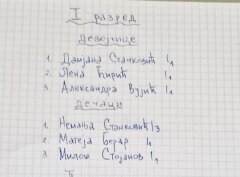 I разред
девојчице
1. Дамјана Стачковић I₁
2. Лена Ћирић I₁
3. Александра Вујић I₁
дечаци
1. Немања Станковић I₃
2. Матеја Берар I₁
3. Милош Стојанов I₁